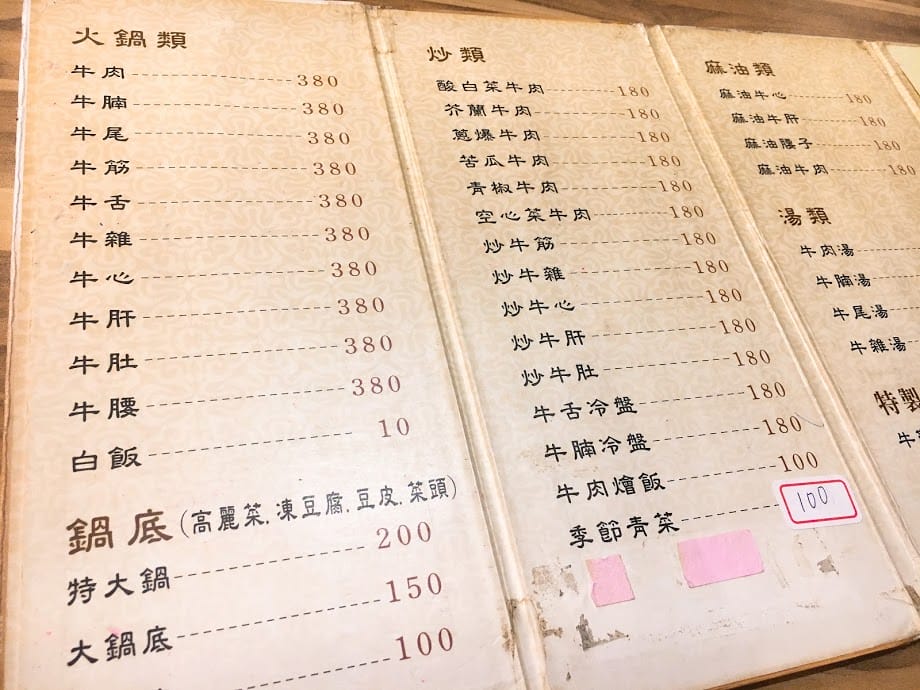 火鍋類
牛肉 380
牛腩 380
牛尾 380
牛筋 380
牛舌 380
牛雜 380
牛心 380
牛肝 380
牛肚 380
牛腰 380
白飯 10
鍋底(高麗菜.凍豆腐.豆皮.菜頭)
特大鍋 200
大鍋底 150
100
炒類
酸白菜牛肉 180
芥蘭牛肉 180
蔥爆牛肉 180
苦瓜牛肉 180
青椒牛肉 180
空心菜牛肉 180
炒牛筋 180
炒牛雜 180
炒牛心 180
炒牛肝 180
炒牛肚 180
牛舌冷盤 180
牛腩冷盤 180
牛肉燴飯 100
季節青菜 100
麻油類
麻油牛心 180
麻油牛肝 180
麻油腰子 180
麻油牛肉 180
湯類
牛肉湯
牛腩湯
牛尾湯
牛雜湯
特製
牛